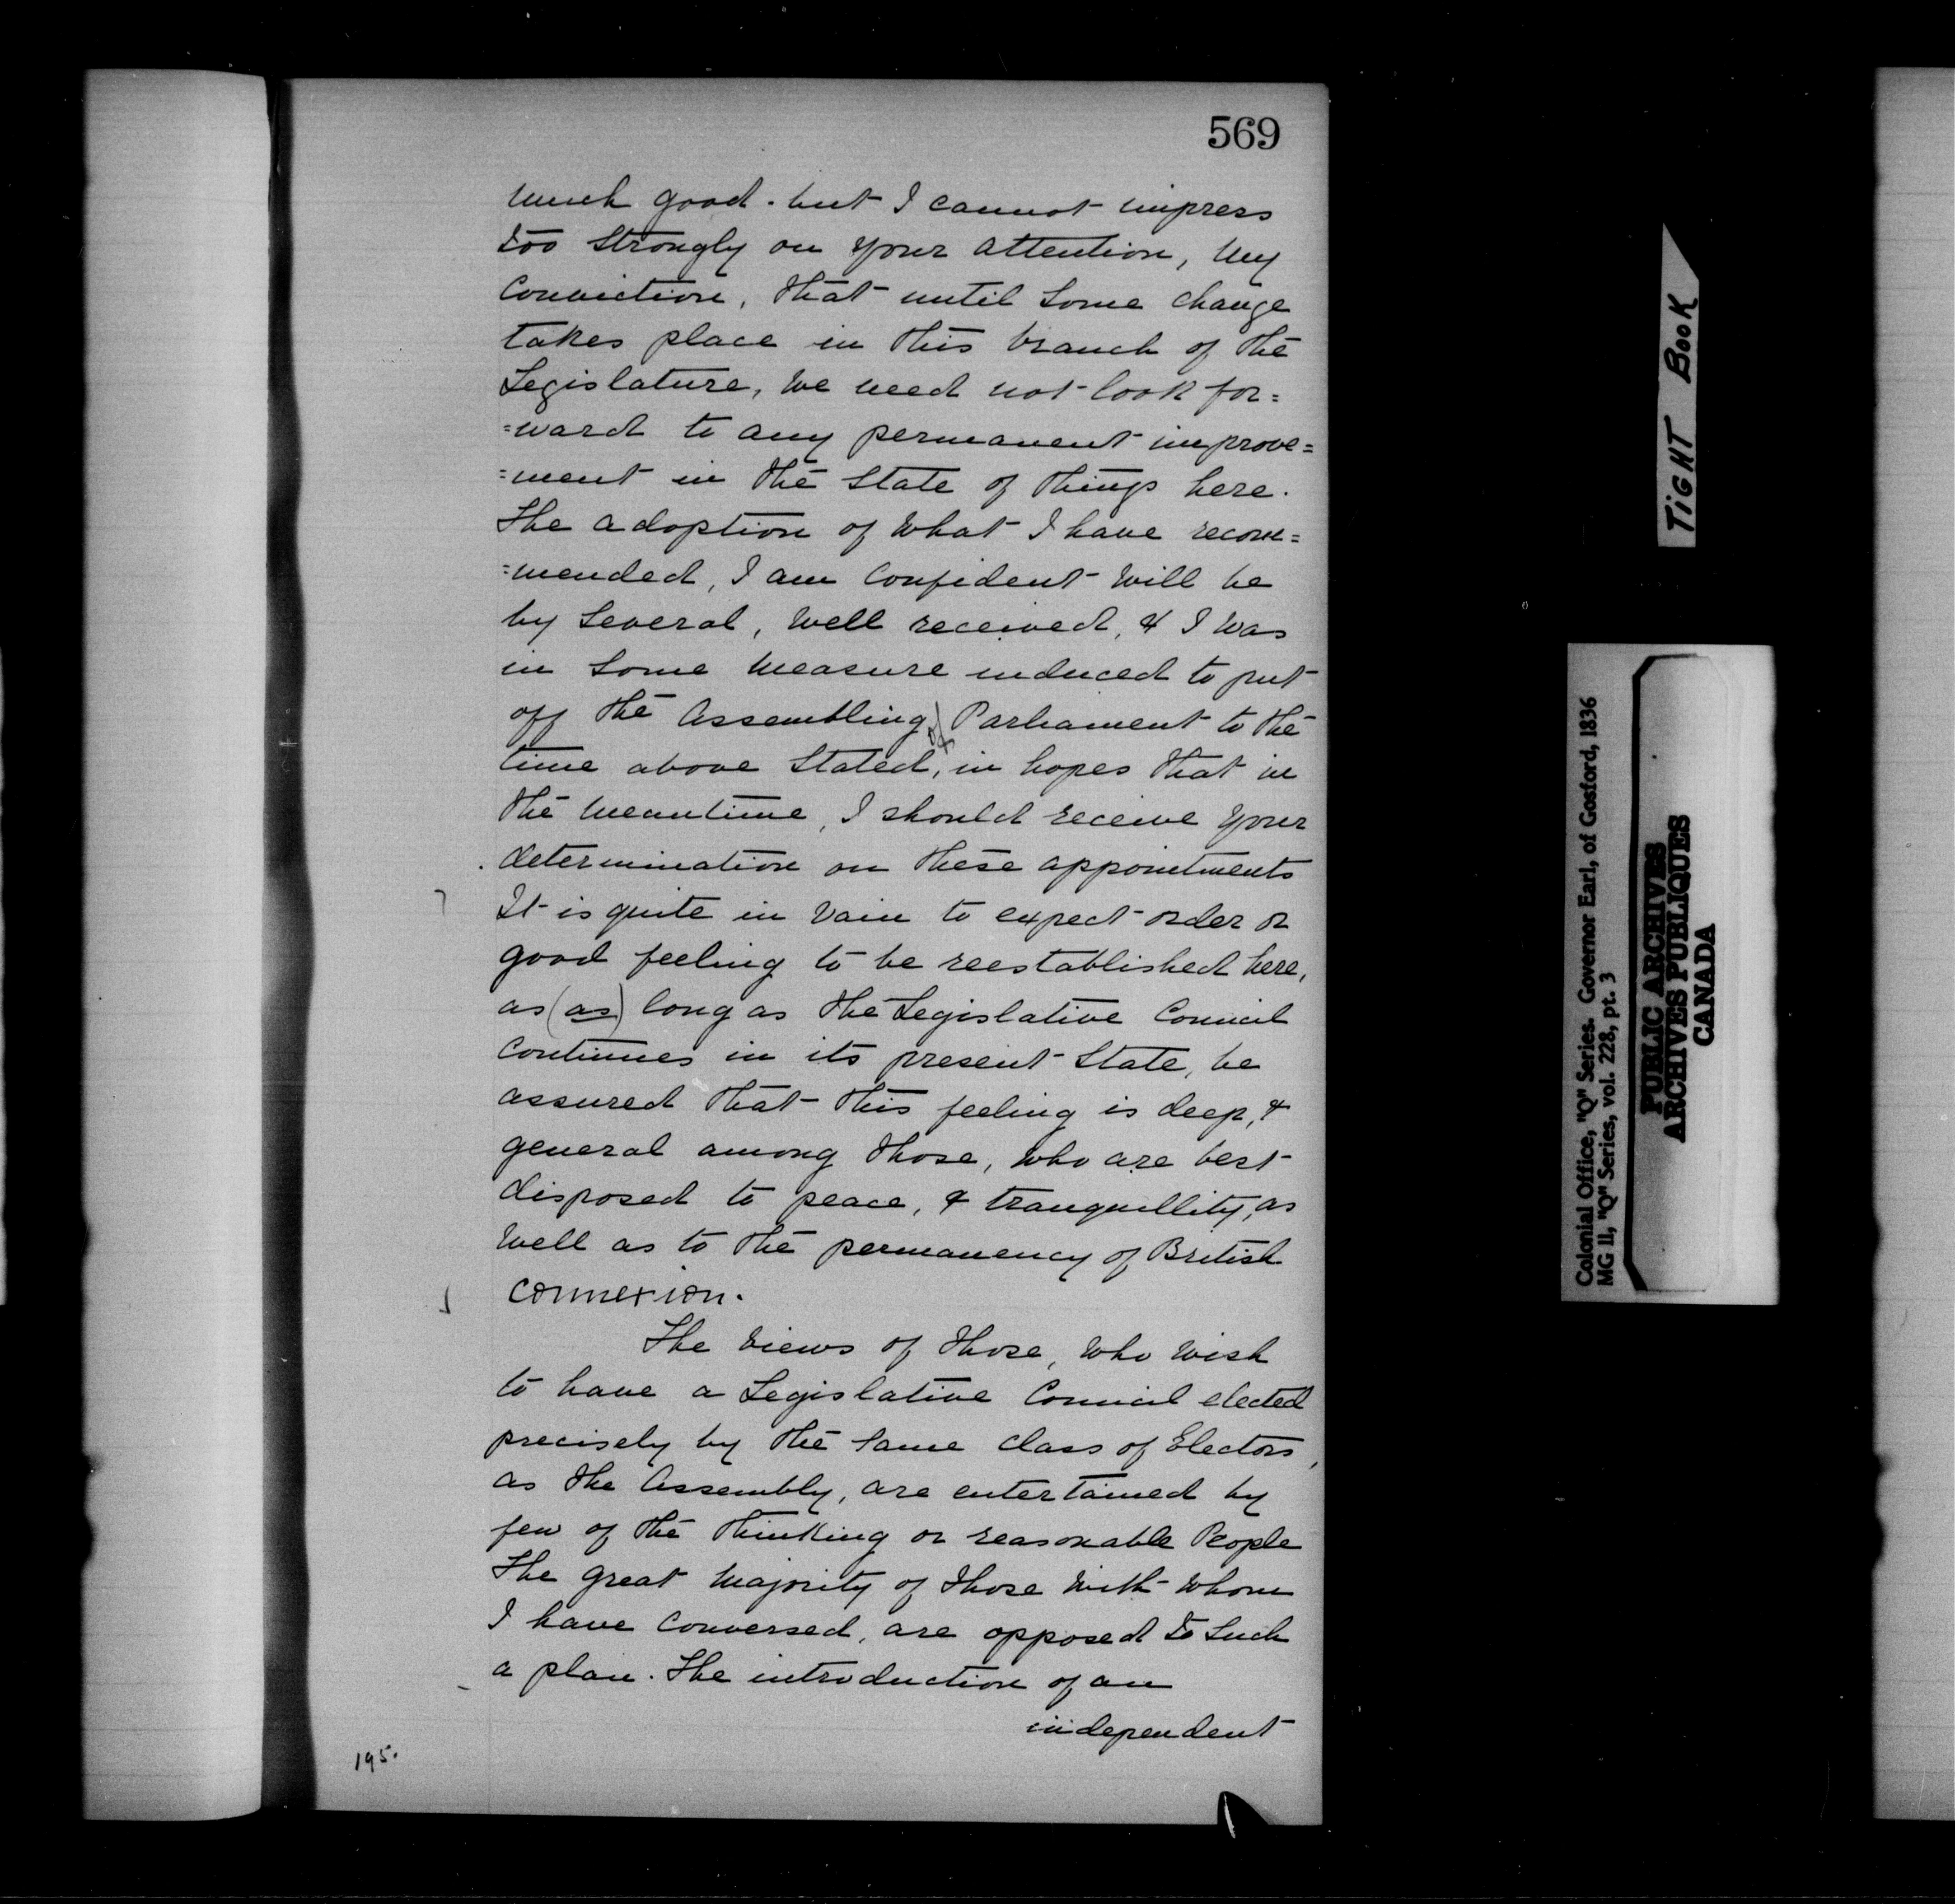 569
much good. but I cannot impress
too strongly on your attention, my
conviction, that until some change
takes place in this branch of the
Legislature, we need not look for=
=ward to any permanent improve=
=ment in the state of things here.
The adoption of what I have recom=
=mended, I am confident will be
by several, well received, & I was
in some measure induced to put
off the assembling of Parliament to the
time above stated, in hopes that in
the meantime, I should receive your
determination on these appointments
It is quite in vain to expect order or
good feeling to be reestablished here,
as (as) long as the Legislative Council
continues in its present state, be
assured that this feeling is deep, &
general among those, who are best
disposed to peace, & tranquillity, as
well as to the permanency of British
connexion.
The views of those, who wish
to have a Legislative Council elected
precisely by the same class of Electors,
as the Assembly, are entertained by
few of the thinking or reasonable People
The great majority of those with whom
I have conversed, are opposed to such
a plan. The introduction of an
independent
195.
TIGHT BOOK
Colonial Office, "Q" Series. Governor Earl, of Gosford, 1836
MG 11, "Q" Series, vol. 228, pt. 3
PUBLIC ARCHIVES
ARCHIVES PUBLIQUES
CANADA